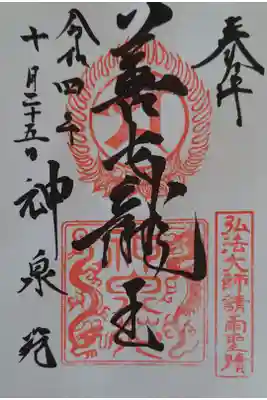 奉拝
弘法大師請雨聖蹟
善女龍王
令和四年
十月二十五日
神泉苑